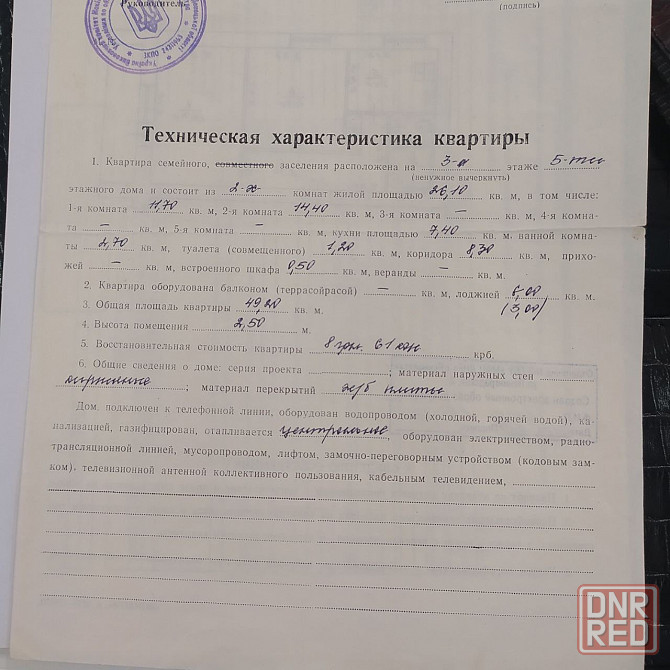 Руководитель
(подпись)
Техническая характеристика квартиры
1. Квартира семейного, совместного заселения расположена на 3-м этаже 5-ти
(ненужное вычеркнуть)
этажного дома и состоит из 2-х комнат жилой площадью 26,10 кв. м, в том числе:
1-я комната 11,70 кв. м, 2-я комната 14,40 кв. м, 3-я комната — кв. м, 4-я комна-
та — кв. м, 5-я комната — кв. м, кухни площадью 7,40 кв. м. ванной комна-
ты 2,70 кв. м, туалета (совмещенного) 1,20 кв. м, коридора 8,30 кв. м, прихо-
жей — кв. м, встроенного шкафа 0,50 кв. м, веранды — кв. м.
2. Квартира оборудована балконом (террасойрасой) — кв. м, лоджией 6,00 кв. м.
(3,00)
3. Общая площадь квартиры 49,20 кв. м.
4. Высота помещения 2,50 м.
5. Восстановительная стоимость квартиры 8 грн. 61 коп крб.
6. Общие сведения о доме: серия проекта ; материал наружных стен
кирпичные ; материал перекрытий ж/б плиты
Дом подключен к телефонной линии, оборудован водопроводом (холодной, горячей водой), ка-
нализацией, газифицирован, отапливается центральное, оборудован электричеством, радио-
трансляционной линией, мусоропроводом, лифтом, замочно-переговорным устройством (кодовым зам-
ком). телевизионной антенной коллективного пользования, кабельным телевидением,
DNR
RED